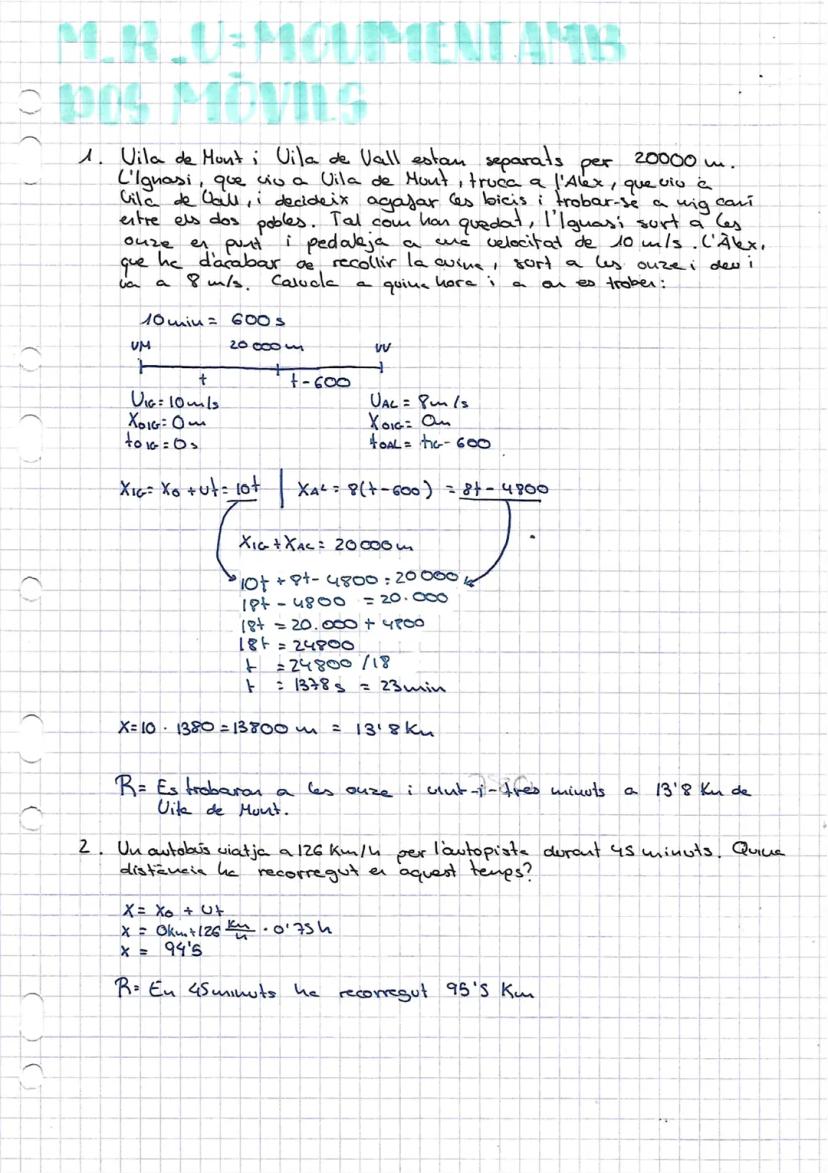 M.R.U=MOVIMENT AMB
DOS MÒVILS
1. Vila de Mont i Vila de Vall estan separats per 20000 m.
L'Ignasi, que viu a Vila de Mont, truca a l'Alex, que viu a
Vila de Vall, i decideix agafar les bicis i trobar-se a mig camí
entre els dos pobles. Tal com han quedat, l'Ignasi surt a les
onze en punt i pedaleja a una velocitat de 10 m/s. L'Àlex,
que ha d'acabar de recollir la cuina, surt a les onze i deu i
va a 8 m/s. Calcula a quina hora i a on es troben:
10 min = 600 s
VM 20 000 m VV
t t-600
VIG = 10 m/s VAL = 8 m/s
X0IG = 0 m X0IG = 0m
t0IG = 0s t0AL = tIG - 600
XIG = X0 + vt = 10t | XAL = 8(t-600) = 8t - 4800
XIG + XAL = 20000 m
10t + 8t - 4800 = 20000
18t - 4800 = 20.000
18t = 20.000 + 4800
18t = 24800
t = 24800 / 18
t = 1378 s = 23 min
X = 10 · 1380 = 13800 m = 13'8 Km
R = Es trobaran a les onze i vint-i-tres minuts a 13'8 Km de
Vila de Mont.
2. Un autobús viatja a 126 Km/h per l'autopista durant 45 minuts. Quina
distància ha recorregut en aquest temps?
X = X0 + vt
X = 0km + 126 Km/h · 0'75 h
X = 94'5
R = En 45 minuts ha recorregut 95'5 Km